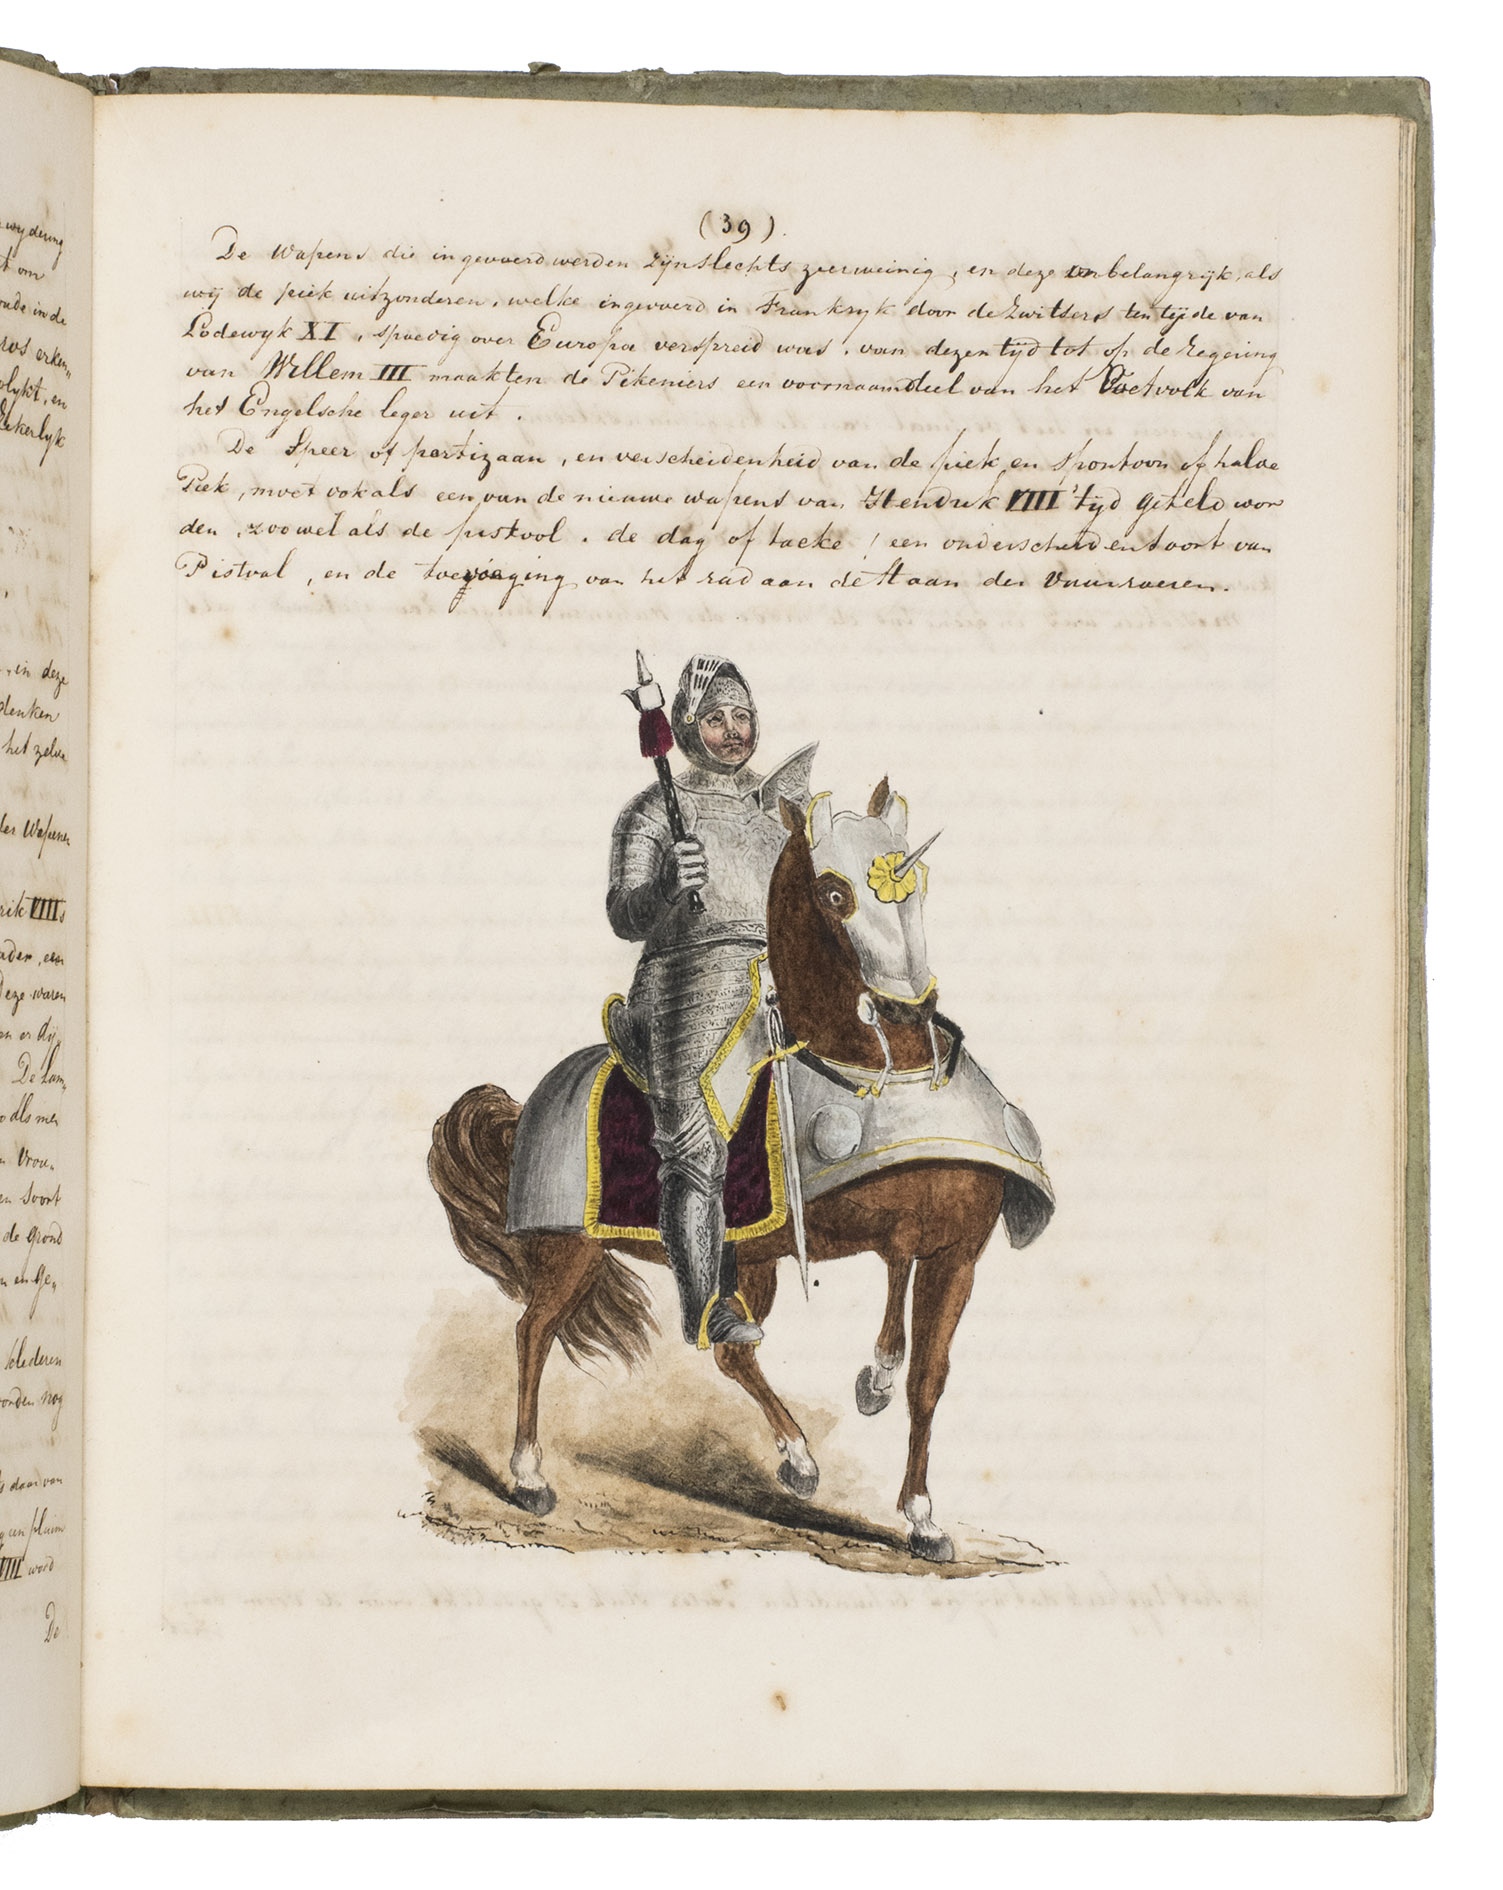 wydering
om
oude in de
ros erken„
olykt, en
zekerlyk
in deze
denken
het zelve
der Wapenen
rik VIIIs
ader, een
Deze waren
en er
De Lam„
als men
Vrou„
een Soort
de grond
en Ge„
lederen
worden nog
daar van
een pluim
VIII word
De
(39).
De Wapens die ingevoerd werden zijn slechts zeer weinig, en deze onbelangrijk, als
wij de piek uitzonderen, welke ingevoerd in Frankryk door de Zwitsers ten tijde van
Lodewyk XI, spoedig over Europa verspreid was, van dezen tijd tot op de Regering
van Willem III maakten de Pikeniers een voornaam deel van het Voetvolk van
het Engelsche leger uit.
De Speer of partizaan, en verscheidenheid van de piek en Spontoon of halve
Piek, moet ook als een van de nieuwe wapens van Hendrik VIII's tijd geteld wor
den, zoowel als de pistool, de dag of tacke ! een onderscheiden Soort van
Pistool, en de toevoeging van het rad aan de Staan der Vuurroeren.